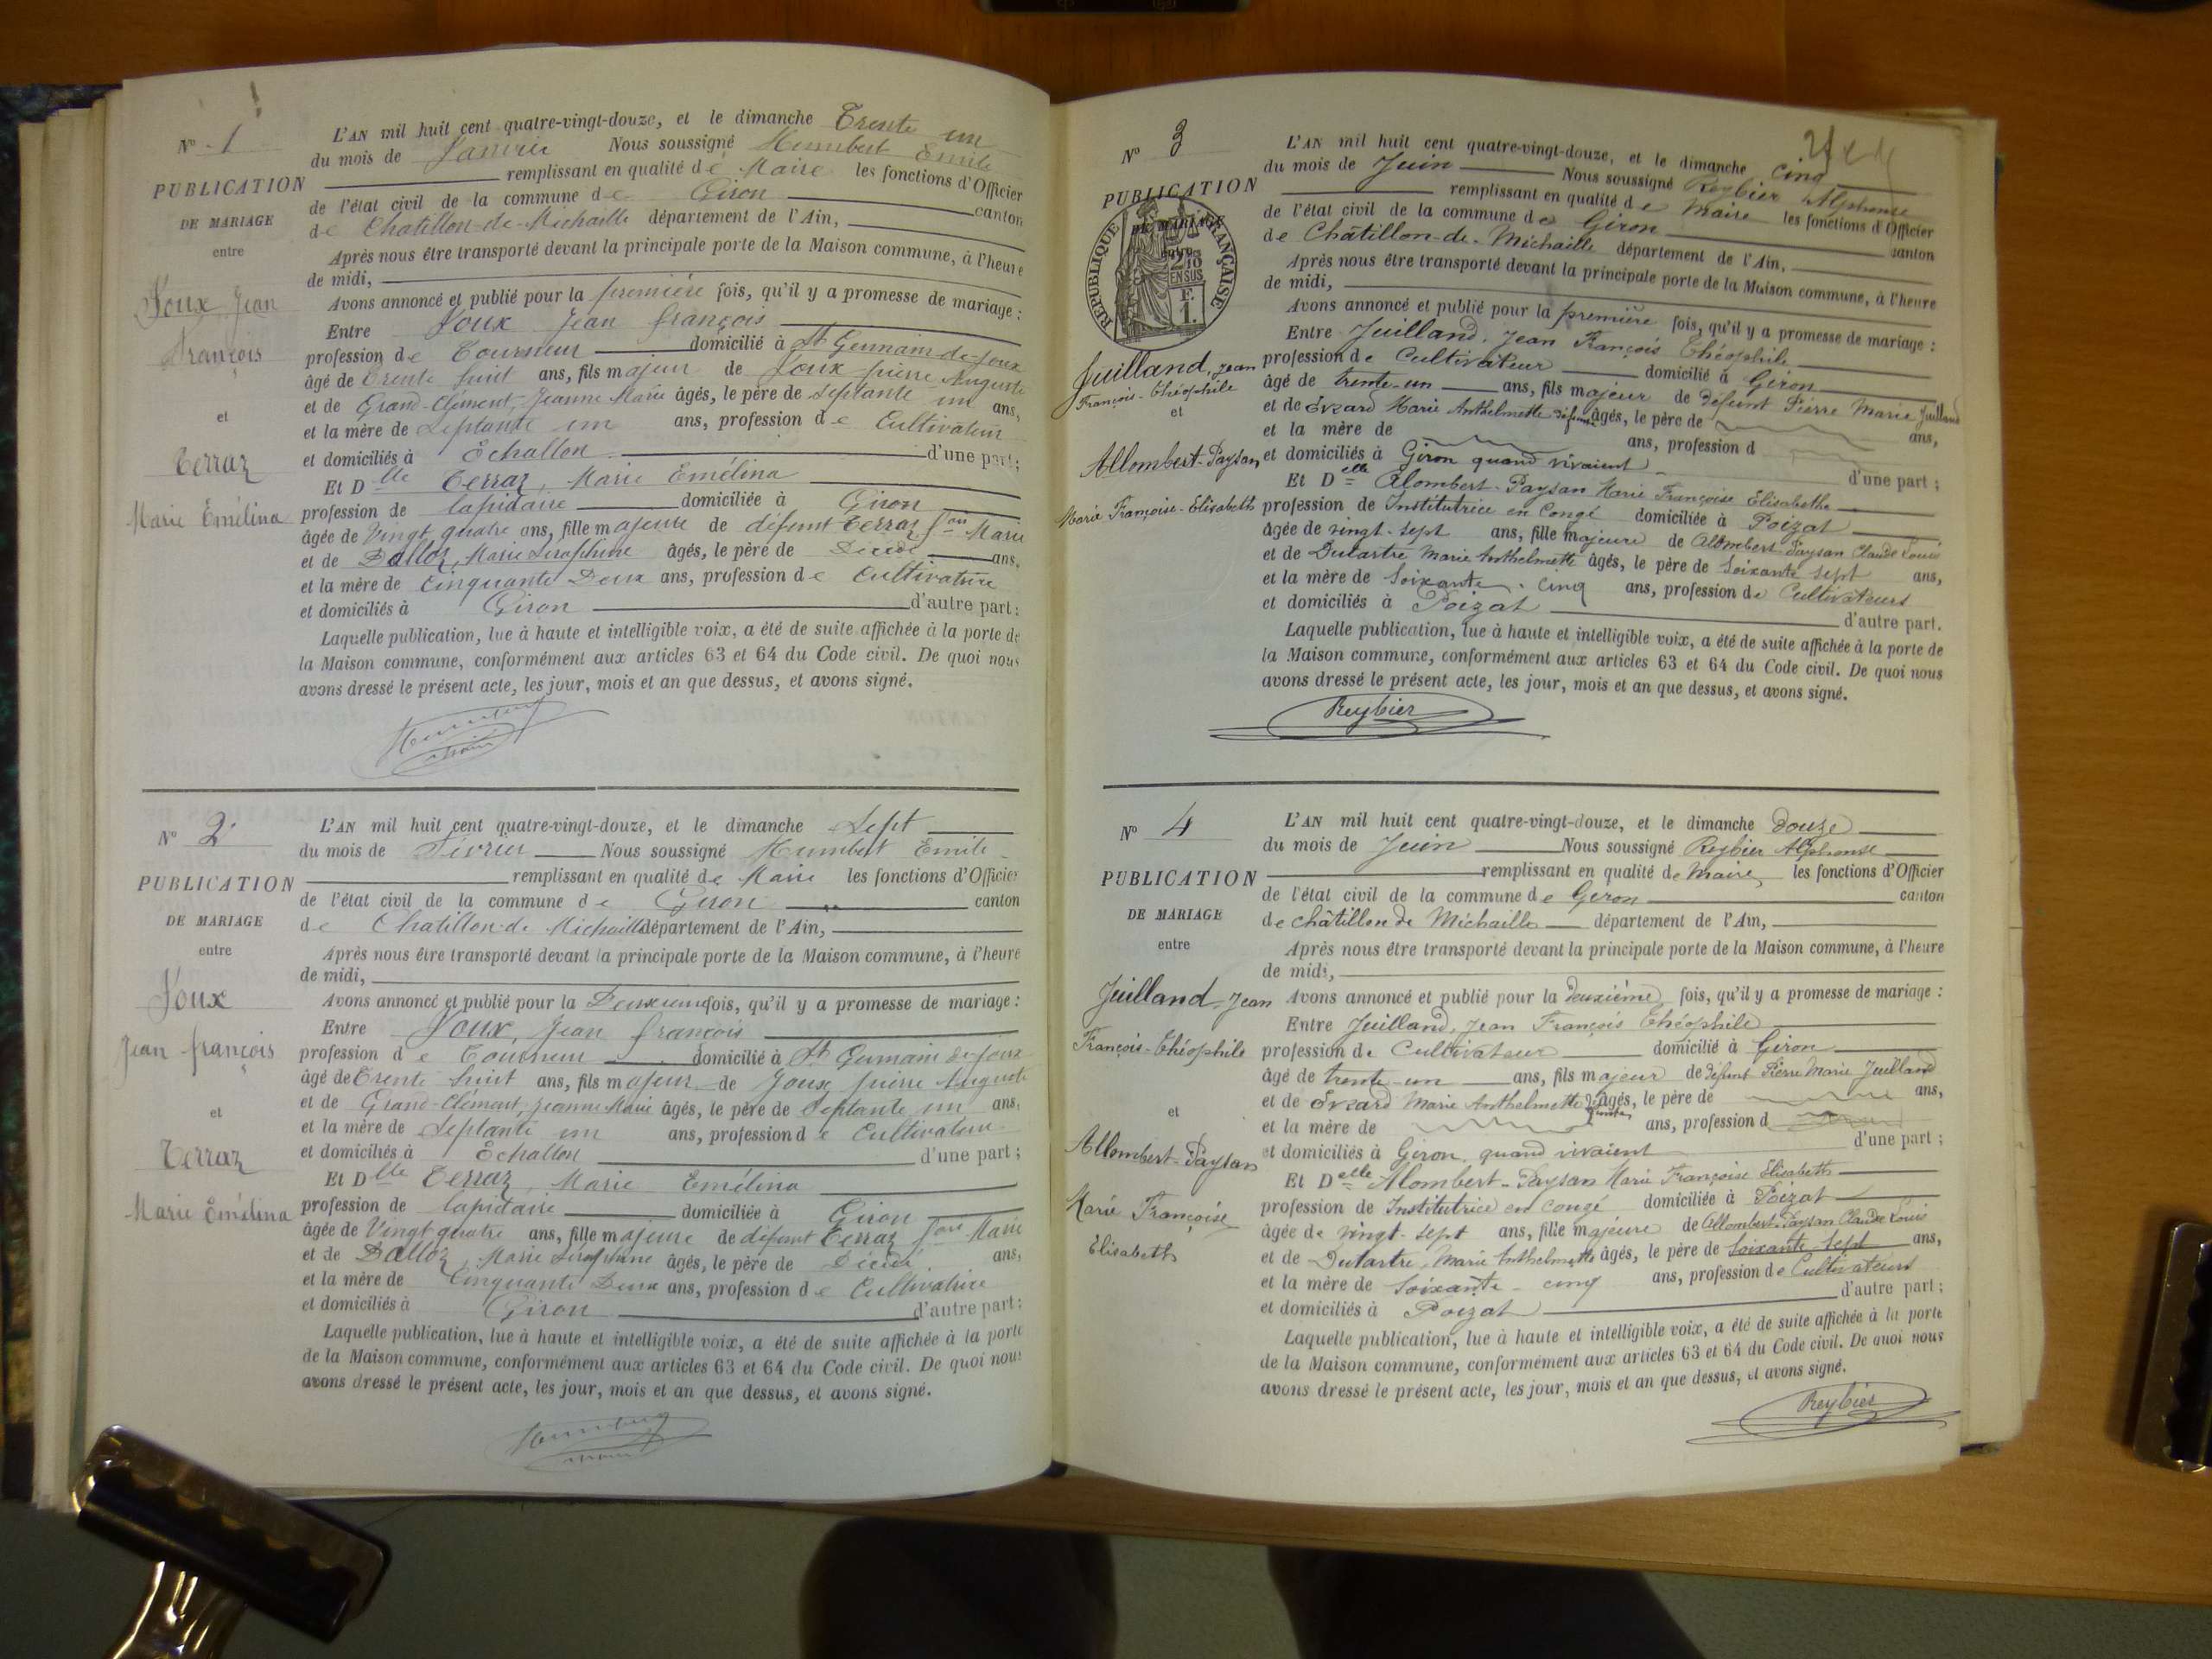 N° 1
PUBLICATION
DE MARIAGE
entre
Joux Jean
François
et
Terraz
Marie Emélina
L'AN mil huit cent quatre-vingt-douze, et le dimanche Trente un
du mois de Janvier Nous soussigné Humbert Emile
remplissant en qualité de Maire les fonctions d'Officier
de l'état civil de la commune de Giron canton
de Chatillon-de-Michaille département de l'Ain,
Après nous être transporté devant la principale porte de la Maison commune, à l'heure
de midi,
Avons annoncé et publié pour la première fois, qu'il y a promesse de mariage :
Entre Joux Jean françois
profession de Tourneur domicilié à St Germain-de-Joux
âgé de Trente huit ans, fils majeur de Joux pierre Auguste
et de Grand-Clément, Jeanne Marie âgés, le père de Septante un ans,
et la mère de Septante un ans, profession de Cultivateur
et domiciliés à Echallon d'une part ;
Et Dlle Terraz, Marie Emélina
profession de lapidaire domiciliée à Giron
âgée de Vingt quatre ans, fille majeure de défunt Terraz Marie
et de Dalloz, Marie Séraphine âgés, le père de Décédé ans,
et la mère de Cinquante Deux ans, profession de Cultivatrice
et domiciliés à Giron d'autre part ;
Laquelle publication, lue à haute et intelligible voix, a été de suite affichée à la porte de
la Maison commune, conformément aux articles 63 et 64 du Code civil. De quoi nous
avons dressé le présent acte, les jour, mois et an que dessus, et avons signé.
Humbert
maire
N° 2
PUBLICATION
DE MARIAGE
entre
Joux
Jean françois
et
Terraz
Marie Emélina
L'AN mil huit cent quatre-vingt-douze, et le dimanche Sept
du mois de Février Nous soussigné Humbert Emile
remplissant en qualité de Maire les fonctions d'Officier
de l'état civil de la commune de Giron canton
de Chatillon-de Michaille département de l'Ain,
Après nous être transporté devant la principale porte de la Maison commune, à l'heure
de midi,
Avons annoncé et publié pour la Deuxième fois, qu'il y a promesse de mariage :
Entre Joux, Jean françois
profession de Tourneur domicilié à St Germain de Joux
âgé de Trente huit ans, fils majeur de Joux, pierre Auguste
et de Grand-Clément, Jeanne Marie âgés, le père de Septante un ans,
et la mère de Septante un ans, profession de Cultivateur
et domiciliés à Echallon d'une part ;
Et Dlle Terraz, Marie Emélina
profession de lapidaire domiciliée à Giron
âgée de Vingt quatre ans, fille majeure de défunt Terraz Marie
et de Dalloz, Marie Séraphine âgés, le père de Décédé ans,
et la mère de Cinquante Deux ans, profession de Cultivatrice
et domiciliés à Giron d'autre part ;
Laquelle publication, lue à haute et intelligible voix, a été de suite affichée à la porte
de la Maison commune, conformément aux articles 63 et 64 du Code civil. De quoi nous
avons dressé le présent acte, les jour, mois et an que dessus, et avons signé.
Humbert
maire
N° 3
PUBLICATION
DE MARIAGE
entre
RÉPUBLIQUE FRANÇAISE
2/10
EN SUS
F.
1.
Juilland, Jean
François-Théophile
et
Allombert-Paysan
Marie Françoise-Elisabeth
L'AN mil huit cent quatre-vingt-douze, et le dimanche cinq
du mois de Juin Nous soussigné Reybier Alphonse
remplissant en qualité de Maire les fonctions d'Officier
de l'état civil de la commune de Giron canton
de Châtillon-de-Michaille département de l'Ain,
Après nous être transporté devant la principale porte de la Maison commune, à l'heure
de midi,
Avons annoncé et publié pour la première fois, qu'il y a promesse de mariage :
Entre Juilland, Jean François Théophile
profession de Cultivateur domicilié à Giron
âgé de trente-un ans, fils majeur de défunt Pierre Marie Juilland
et de Evrard Marie Anthelmette défunte âgés, le père de ans,
et la mère de ans, profession d
et domiciliés à Giron quand vivaient d'une part ;
Et Delle Alombert-Paysan Marie Françoise Elisabethe
profession de Institutrice en congé domiciliée à Poizat
âgée de vingt-sept ans, fille majeure de Alombert Paysan Claude Louis
et de Dutartre Marie Anthelmette âgés, le père de Soixante sept ans,
et la mère de Soixante-cinq ans, profession de Cultivateurs
et domiciliés à Poizat d'autre part.
Laquelle publication, lue à haute et intelligible voix, a été de suite affichée à la porte de
la Maison commune, conformément aux articles 63 et 64 du Code civil. De quoi nous
avons dressé le présent acte, les jour, mois et an que dessus, et avons signé.
Reybier
N° 4
PUBLICATION
DE MARIAGE
entre
Juilland, Jean
François-Théophile
et
Allombert-Paysan
Marie Françoise
Elisabeth
L'AN mil huit cent quatre-vingt-douze, et le dimanche douze
du mois de Juin Nous soussigné Reybier Alphonse
remplissant en qualité de Maire, les fonctions d'Officier
de l'état civil de la commune de Giron canton
de châtillon de Michaille département de l'Ain,
Après nous être transporté devant la principale porte de la Maison commune, à l'heure
de midi,
Avons annoncé et publié pour la deuxième fois, qu'il y a promesse de mariage :
Entre Juilland, Jean François Théophile
profession de Cultivateur domicilié à Giron
âgé de trente-un ans, fils majeur de défunt Pierre Marie Juilland
et de Evrard Marie Anthelmette défunte âgés, le père de ans,
et la mère de ans, profession d
et domiciliés à Giron quand vivaient d'une part ;
Et Delle Alombert-Paysan Marie Françoise Elisabeth
profession de Institutrice en congé domiciliée à Poizat
âgée de vingt-sept ans, fille majeure de Allombert-Paysan Claude Louis
et de Dutartre, Marie Anthelmette âgés, le père de Soixante sept ans,
et la mère de Soixante-cinq ans, profession de Cultivateurs
et domiciliés à Poizat d'autre part ;
Laquelle publication, lue à haute et intelligible voix, a été de suite affichée à la porte
de la Maison commune, conformément aux articles 63 et 64 du Code civil. De quoi nous
avons dressé le présent acte, les jour, mois et an que dessus, et avons signé.
Reybier